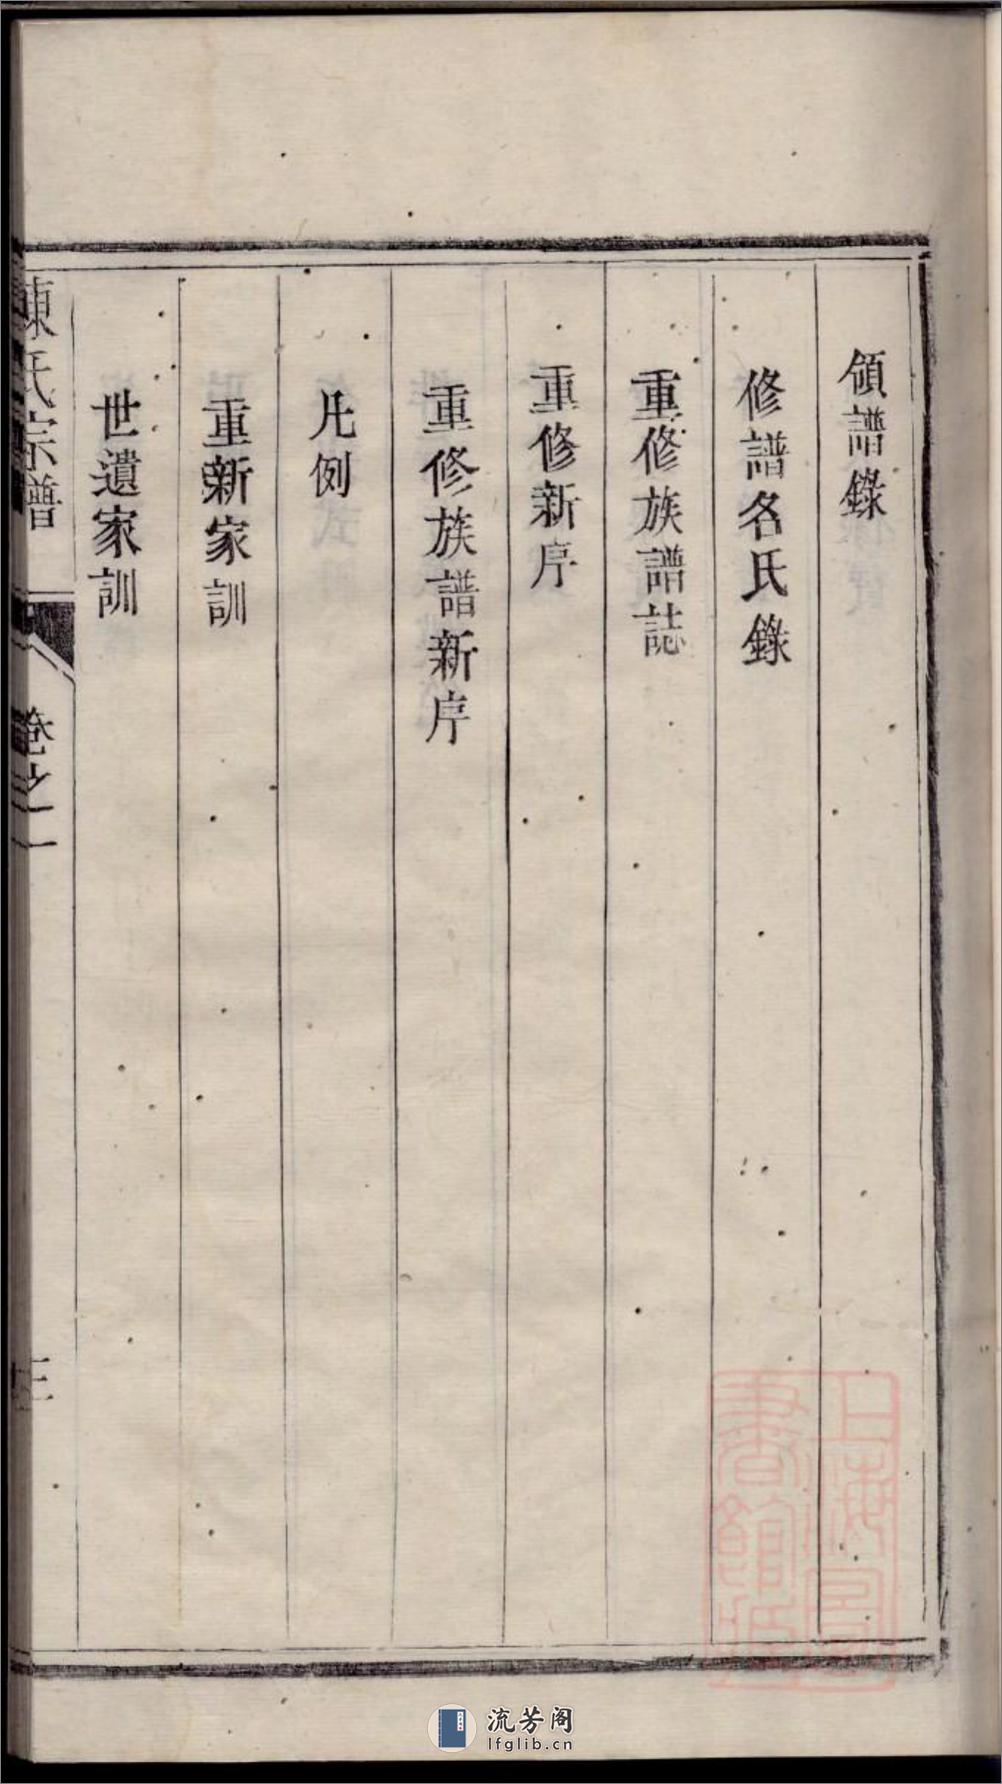 領譜錄
修譜名氏錄
重修族譜誌
重修新序
重修族譜新序
凡例
重新家訓
世遺家訓
陳氏宗譜
卷之一
三
上海圖書館藏
流芳阁
lfglib.cn